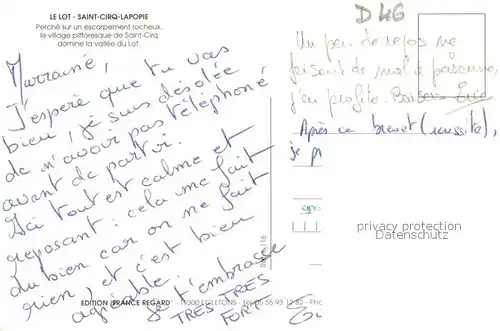 LE LOT - SAINT-CIRQ-LAPOPIE
Perché sur un escarpement rocheux,
le village pittoresque de Saint-Cirq
domine la vallée du Lot.
Marraine,
J'espère que tu vas
bien, je suis désolée
de n'avoir pas téléphoné
avant de partir.
Ici tout est calme et
reposant : cela me fait
du bien car on ne fait
rien, et c'est bien
agréable. Je t'embrasse
TRES TRES
FORT
EDITION "FRANCE REGARD" - 19300 EGLETONS - Tél. 05 55 93 12 82 - Pho
D 46
Un peu de repos ne
faisant de mal à personne,
j'en profite. Baisers Eric
Après ce brevet (réussite),
je p
privacy protection
Datenschutz